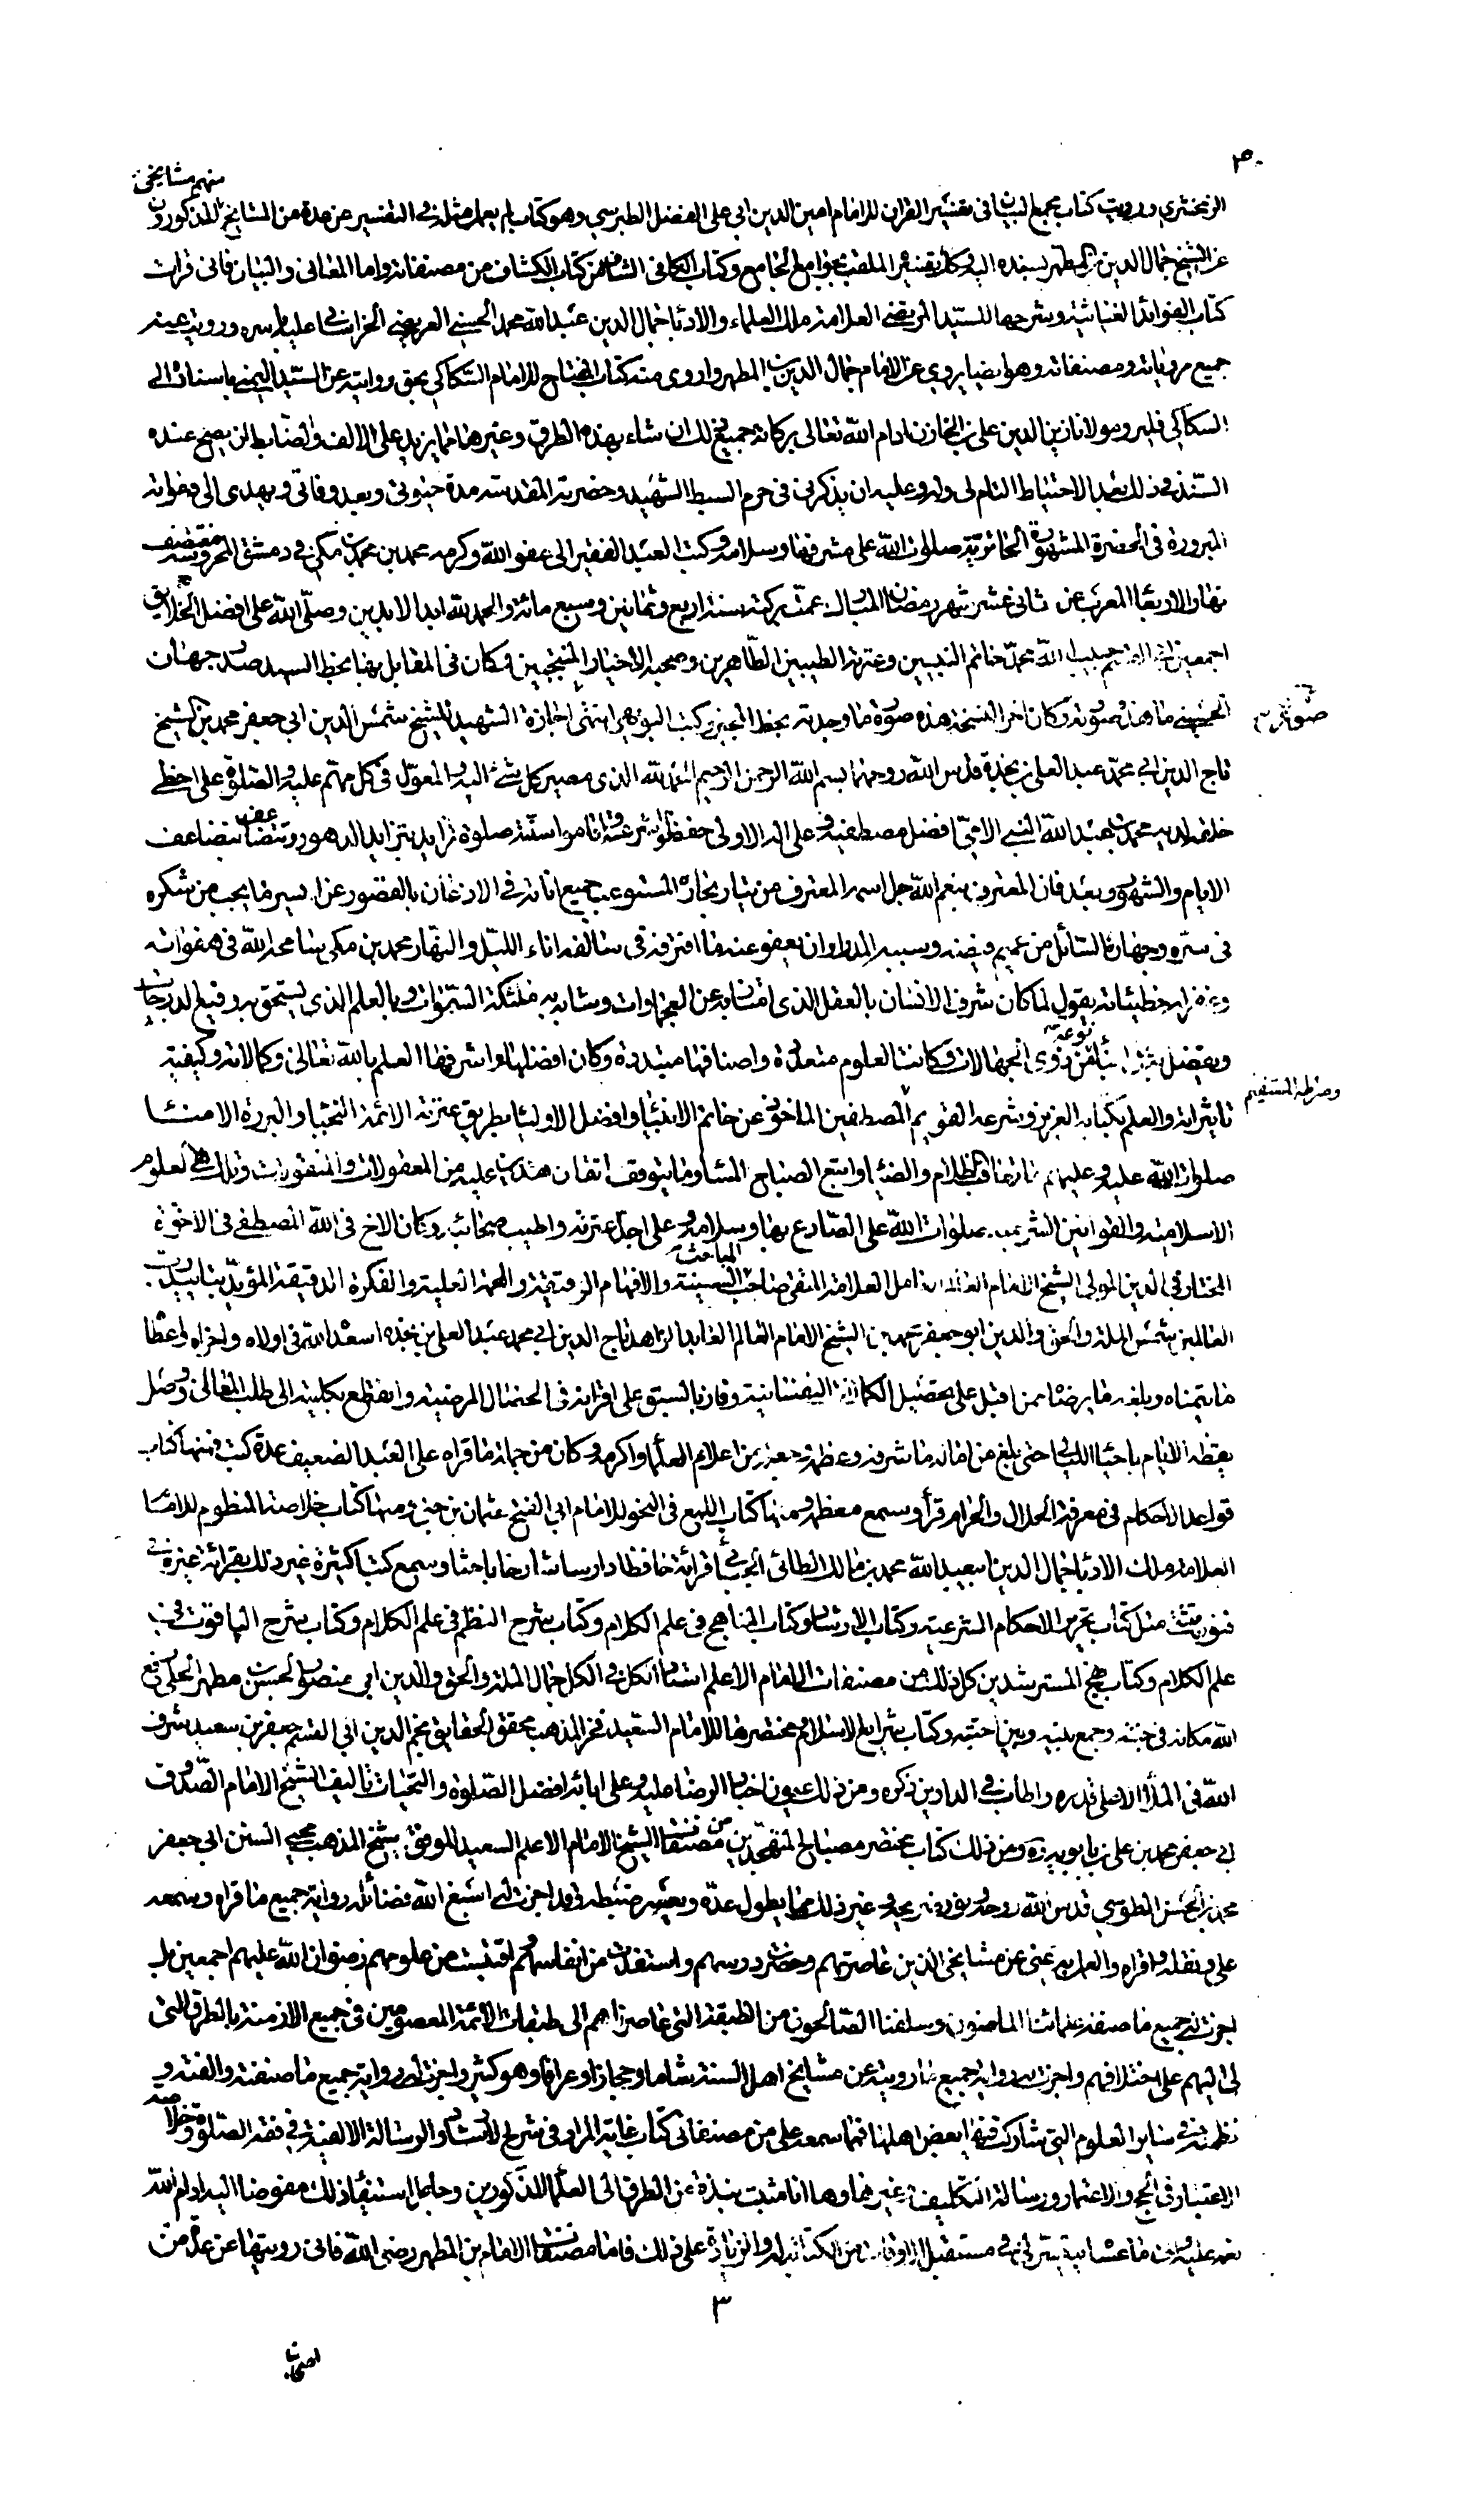 منهم مشايخى
الزمخشري ورويت كتاب مجمع البيان فى تفسير القران للامام امين الدين ابى على الفضل الطبرسي وهو كتاب لم يعمل مثله فى التفسير عن عدة من المشايخ المذكورون
عن الشيخ جمال الدين بن المطهر بسنده اليه وكذلك تفسيره الملقب بجوامع الجامع وكتاب الكافى الشاف من كتاب الكشاف من مصنفاته واما المعانى والبيان فانى قرات
كتاب الفوائد الغياثية وشرحها للسيد المرتضى العلامة ملك العلماء والادباء جمال الدين عبد الله محمد الحسينى العريضى الخراسانى عليه باسره ورويت عنه
جميع مروياته ومصنفاته وهو ايضا يروى عن الامام جمال الدين بن المطهر واروى عنه كتاب المفتاح للامام السكاكى بحق روايته عن السيد اليمنى باسناده الى
السكاكى فليرو مولانا زين الدين على بن الخازن ادام الله تعالى بركاته جميع ذلك ان شاء بهذه الطرق وغيرها مما يزيد على الالف والضابط ان يصح عنده
السند فى ذلك بعد الاحتياط التام لى وله وعليه ان يذكرنى فى حرم السبط الشهيد وحضرته المقدسة مدة حيوتى وبعد وفاتى ويهدى الى دعواته
المبرورة فى الحضرة المشهورة الحائرية صلوات الله على مشرفها وسلامه وكتب العبد الفقير الى عفو الله وكرمه محمد بن محمد بن مكى فى دمشق المحروسة منتصف
نهار الاربعا المعرب عن ثانى عشر شهر رمضان المبارك عمت بركته سنة اربع وثمانين وسبع مائة والحمد لله ابد الابدين وصلى الله على افضل الخلايق
اجمعين حبيب الله محمد خاتم النبيين وعترته الطيبين الطاهرين وصحبه الاخيار المنتجبين وكان فى المقابل بها بخط السيد
الحسينى ما هذا صورته وكان اخر النسخة هذه صورة ما وجدته بخط المجيز وكتب انتهى اجازة الشهيد للشيخ شمس الدين ابى جعفر محمد بن الشيخ
صورته
تاج الدين ابى محمد عبد العلى بن نجدة قدس الله روحهما بسم الله الرحمن الرحيم الحمد لله الذى مصير كل شئ اليه والمعول فى كل مهم عليه والصلوة على احظى
خلقه لديه محمد بن عبد الله النبى الامى افضل مصطفيه وعلى اله الاولى حفظوا شرعته واقاموا سنته صلوة تزايد بتزايد الدهور وتتضاعف بتضاعف
الايام والشهور وبعد فان المعترف بنعم الله جل اسمه المغترف من تيار بحاره المستوعب جميع اناته فى الاذعان بالقصور عن ايسر ما يجب من شكره
فى سره وجهاره السائل من عميم فيضه وسيبه المدرار ان يعفو عنه ما اقترفه فى سالفه اناء الليل والنهار محمد بن مكى سامحه الله فى هفواته
وغفر له خطيئاته يقول لما كان شرف الانسان بالعقل الذى امتاز به عن العجماوات وشابه به ملئكة السموات وبالعلم الذى يستحق به رفيع الدرجات
ويفضل من ذوى الجهالات وكانت العلوم متعددة واصنافها متبددة وكان افضلها واشرفها العلم بالله تعالى وكمالاته وكيفية
تاثيراته والعلم بكتابه العزيز وشرعه القويم المصطفين الماخوذ عن خاتم الانبيا وافضل الاوليا بطريق عترته الائمة النجبا والبررة الامنا
وصراطه المستقيم
صلوات الله عليه وعليهم ما تعاقب الظلام والضيا واتبع الصباح المسا وما يتوقف اتقان هذين عليه من المعقولات والمنقولات وتلك هى العلوم
الاسلامية والقوانين الشرعية صلوات الله على الصادع بها وسلامه وعلى اجل عترته واطيب صحابته وكان الاخ فى الله المصطفى فى الاخوة
المختار فى الدين المولى الشيخ الامام العالم العامل العلامة المتقى صاحب المباحث السنية والافهام الرفيعة والهمة العلية والفكرة الدقيقة المؤيد بتاييد رب
العالمين شمس الملة والحق والدين ابو جعفر محمد بن الشيخ الامام العالم العابد الزاهد تاج الدين ابى محمد عبد العلى بن نجده اسعد الله فى اولاه واخراه واعطا
ما يتمناه وبلغه ما يرضاه ممن اقبل على تحصيل الكمالات النفسانية وفاز بالسبق على اقرانه فى الخصال المرضية وانقطع بكليته الى طلب المعالى ووصل
يقظة الايام باحياء الليالى حتى بلغ من امانه ما شرفه وعظمه وجعله من اعلام العلما واكرمه وكان من جملة ما قراه على العبد الضعيف عدة كتب فمنها كتاب
قواعد الاحكام فى معرفة الحلال والحرام قرأ وسمع معظمه ومنها كتاب اللمع فى النحو للامام ابى الفتح عثمان بن جنى ومنها كتاب خلاصة المنظوم للامام
العلامة ملك الادباء جمال الدين ابى عبد الله محمد بن مالك الطائى الجيانى قرأه حافظا دارسا شارحا باحثا وسمع كتبا كثيرة غير ذلك بقرائة غيره فى
فنون شتى مثل كتاب تحرير الاحكام الشرعية وكتاب الارشاد وكتاب المناهج فى علم الكلام وكتاب شرح النظم فى علم الكلام وكتاب شرح الياقوت فى
علم الكلام وكتاب نهج المسترشدين كل ذلك من مصنفات الامام الاعلم استاد الكل فى الكل جمال الملة والحق والدين ابى منصور الحسن بن مطهر الحلى رفع
الله مكانه فى جنته وجمع بينه وبين احبته وكتاب شرايع الاسلام ومختصرها للامام السعيد فخر المذهب محقق الحقايق نجم الدين ابى القسم جعفر بن سعيد شرف
الله فى الملأ الاعلى قدره واطاب فى الدارين ذكره ومن ذلك عيون اخبار الرضا عليه وعلى ابائه افضل الصلوة والتحيات تاليف الشيخ الامام الصدوق
ابى جعفر محمد بن على بن بابويه ره ومن ذلك كتاب مختصر مصباح المتهجد من مصنفات الشيخ الامام الاعلم السعيد الموفق شيخ المذهب محيى السنن ابى جعفر
محمد بن الحسن الطوسى قدس الله روحه ونور ضريحه وغير ذلك مما يطول عده ويعسر ضبطه وقد اجزت له اسبغ الله فضائله رواية جميع ما قراه وسمعه
على ونقله واقراه والعمل به عنى عن مشايخى الذين عاصرتهم وحضرت دروسهم واستفدت من انفاسهم واقتبست من علومهم رضوان الله عليهم اجمعين بل
اجزت له جميع ما صنفه علمائنا الماضون وسلفنا الصالحون من الطبقة التى عاصرناهم الى طبقات الائمة المعصومين فى جميع الازمنة بالطرق التى
لى اليهم على اختلافهم واجزت له رواية جميع ما رويته عن مشايخ اهل السنة شاما وحجازا وعراقا وهو كثير واجزت له رواية جميع ما صنفته والفته و
نظمته فى ساير العلوم التى شاركت فيها بعض اهلها فمما سمعه على من مصنفاتى كتاب غاية المراد فى شرح الارشاد والرسالة الالفية فى فقه الصلوة وخلاصة
الاعتبار فى الحج والاعتمار ورسالة التكليف وغيرها وها انا مثبت نبذة من الطرق الى العلما المذكورين وجاعل استنفاذ ذلك مفوضا اليه ادام الله
نعمه عليه فى مستقبل الاوقات من الكتابة له والزيادة على ذلك فاما مصنفات الامام بن المطهر رضى الله فانى رويتها عن عدة من
٣
اصحابنا